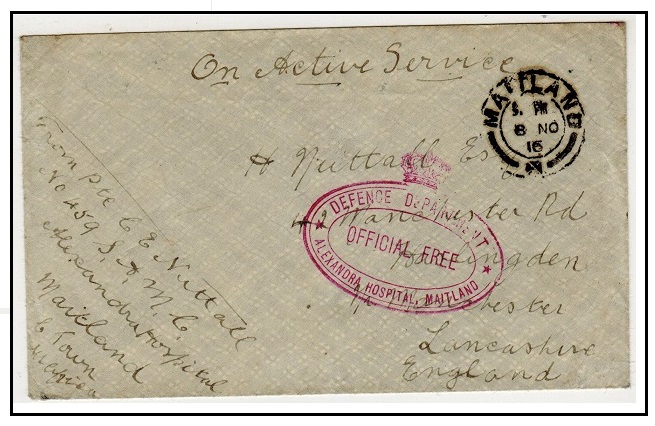 On Active Service
MAITLAND
5. PM
8 NO
16
H Nuttall Es
42 Manchester Rd
Haslingden
Nr Manchester
Lancashire
England
DEFENCE DEPARTMENT
OFFICIAL FREE
ALEXANDRA HOSPITAL, MAITLAND
From Pte C E Nuttall
No 459 S. A. M. C.
Alexandra Hospital
Maitland
C Town